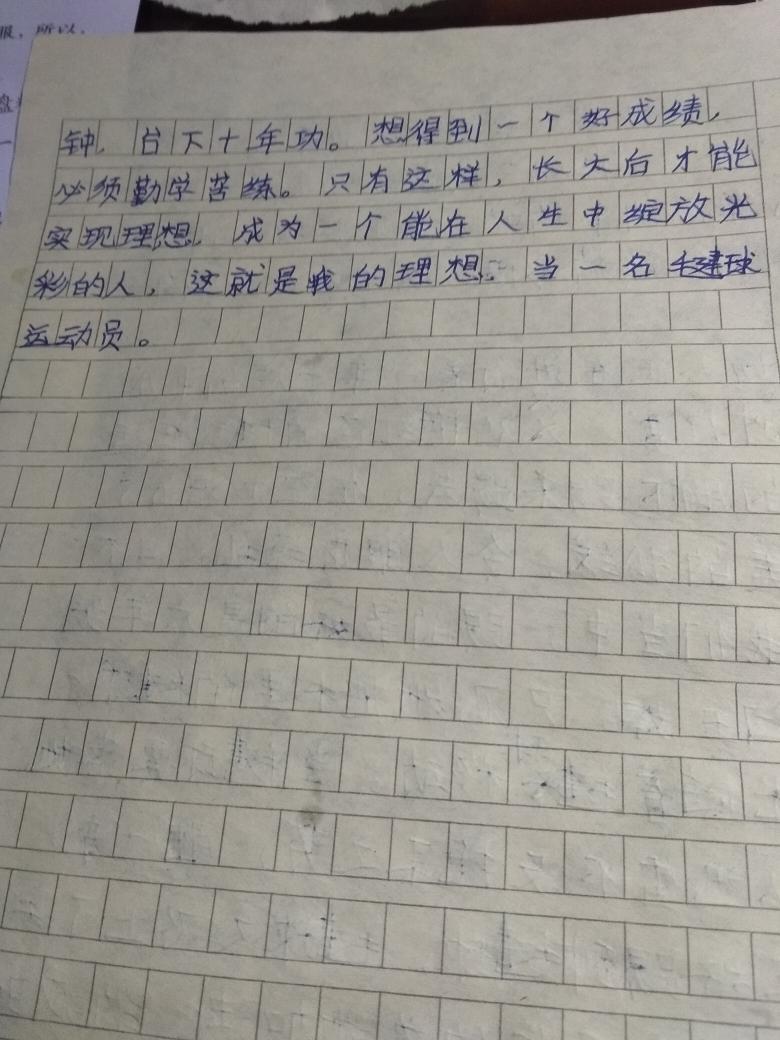 服，所以，
钟，台下十年功。想得到一个好成绩，
必须勤学苦练。只有这样，长大后才能
实现理想，成为一个能在人生中绽放光
彩的人，这就是我的理想：当一名毽球
运动员。